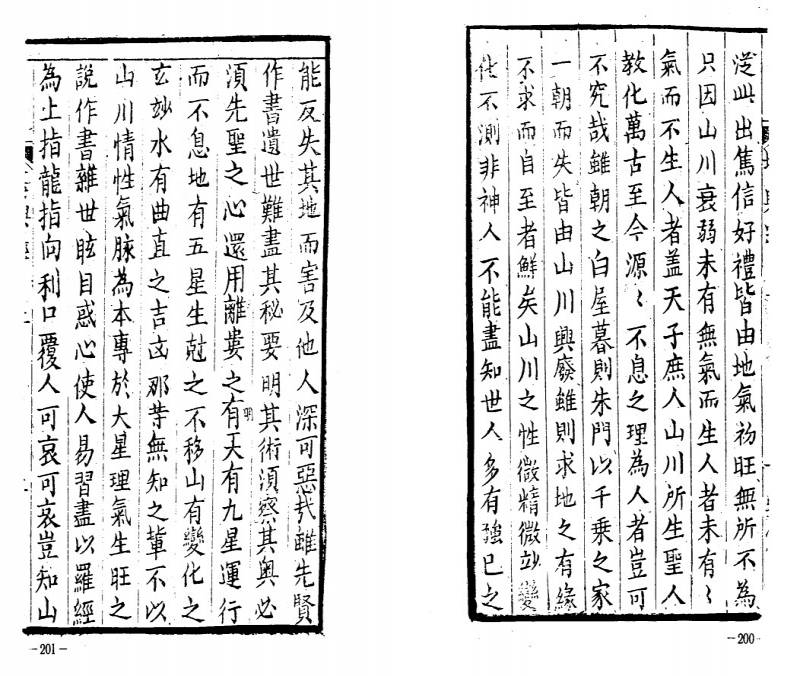 從此出篤信好禮皆由地氣初旺無所不為
只因山川衰弱未有無氣而生人者未有〻
氣而不生人者盖天子庶人山川所生聖人
教化萬古至今源〻不息之理為人者豈可
不究哉雖朝之白屋暮則朱門以千乗之家
一朝而失皆由山川興廢雖則求地之有緣
不求而自至者鮮矣山川之性微精微玅變
化不測非神人不能盡知世人多有強已之
-200-
能反失其地而害及他人深可惡哉雖先賢
作書遺世難盡其秘要明其術湏察其奥必
湏先聖之心還用離婁之明有天有九星運行
而不息地有五星生尅之不移山有變化之
玄玅水有曲直之吉凶那等無知之輩不以
山川情性氣脉為本專於大星理氣生旺之
說作書雜世眩目惑心使人易習盡以羅經
為上指龍指向利口覆人可哀可哀豈知山
-201-